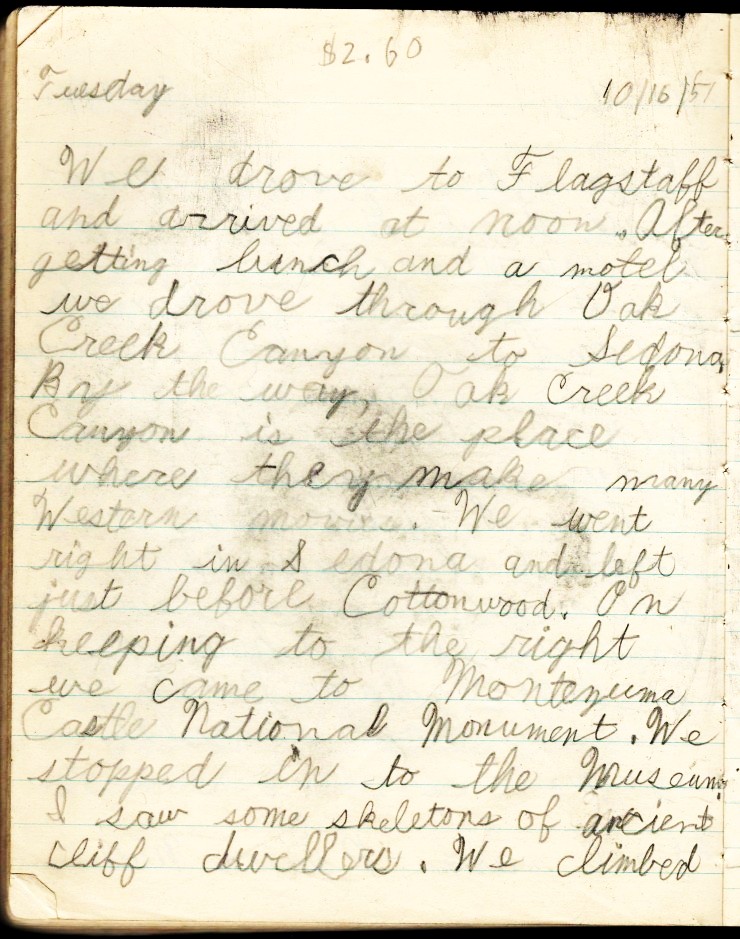 $2.60
Tuesday 10/16/51
We drove to Flagstaff
and arrived at noon. After
getting lunch and a motel
we drove through Oak
Creek Canyon to Sedona,
By the way, Oak Creek
Canyon is the place
where they make many
Western movies. We went
right in Sedona and left
just before Cottonwood. On
keeping to the right
we came to Montezuma
Castle National Monument. We
stopped in to the Museum.
I saw some skeletons of ancient
cliff dwellers. We climbed